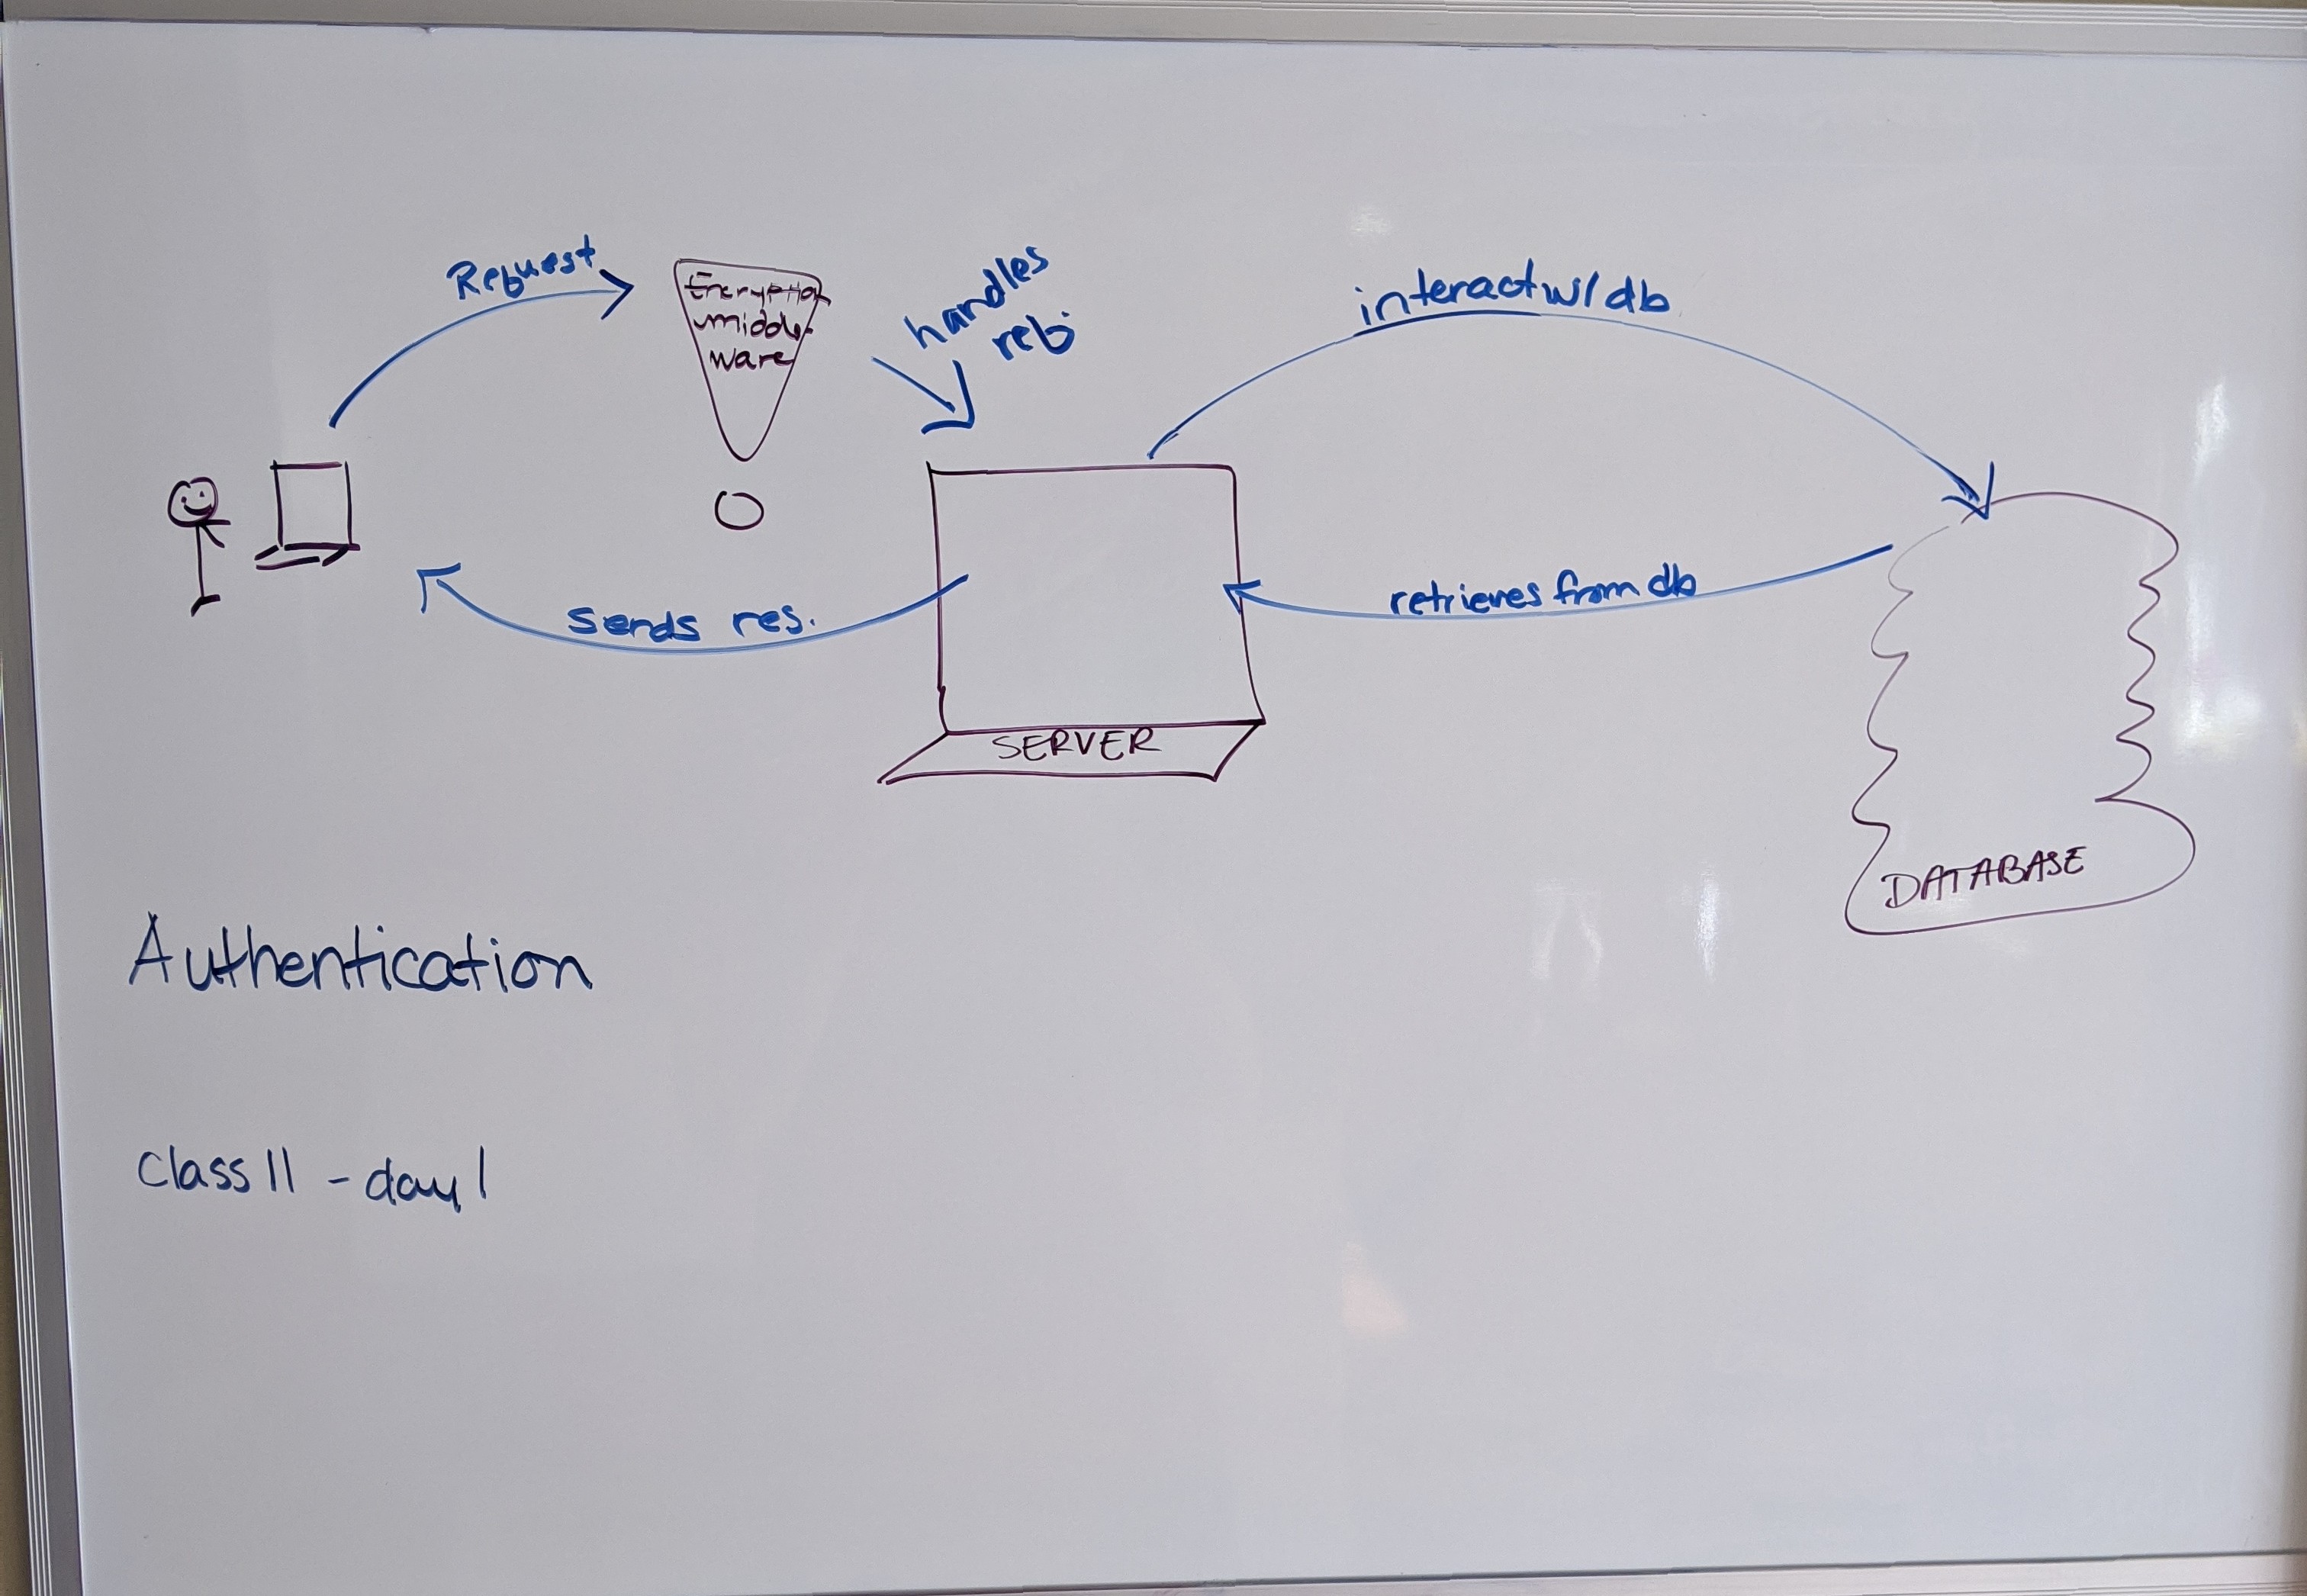 Request
Encryption
middle-
ware
handles
req.
interact w/ db
sends res.
retrieves from db
SERVER
DATABASE
Authentication
Class 11 - day 1